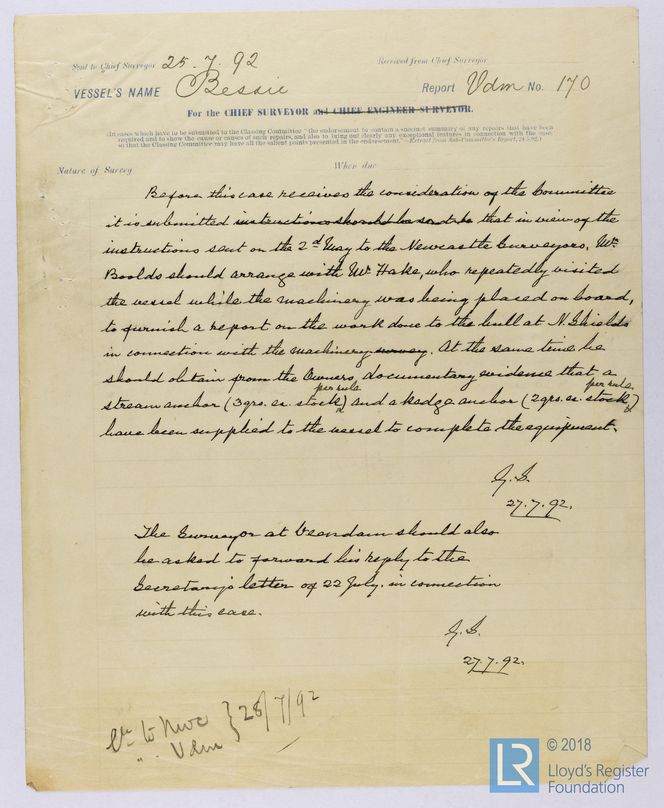 Sent to Chief Surveyor 25.7.92 Received from Chief Surveyor
VESSEL'S NAME Bessie Report Vdm No. 170
For the CHIEF SURVEYOR and CHIEF ENGINEER SURVEYOR.
(In cases which have to be submitted to the Classing Committee "the endorsement to contain a succinct summary of any repairs that have been
required and to show the cause or causes of such repairs, and also to bring out clearly any exceptional features in connection with the case,
so that the Classing Committee may have all the salient points presented in the endorsement."—Extract from Sub-Committee's Report, 24.5.92.)
Nature of Survey When due
Before this case receives the consideration of the Committee
it is submitted instructions should be sent to that in view of the
instructions sent on the 2nd May to the Newcastle Surveyors, Mr
Boolds should arrange with Mr Hake, who repeatedly visited
the vessel while the machinery was being placed on board,
to furnish a report on the work done to the hull at N. Shields
in connection with the machinery survey. At the same time he
should obtain from the Owners, documentary evidence that a
stream anchor (3 qrs. ex. stock per rule) and a kedge anchor (2 qrs. ex. stock per rule)
have been supplied to the vessel to complete the equipment.
J.S.
27.7.92.
The Surveyor at Veendam should also
be asked to forward his reply to the
Secretary's letter of 22 July, in connection
with this case.
J.S.
27.7.92.
to Nwc } 28/7/92
" Vdm
LR © 2018
Lloyd's Register
Foundation